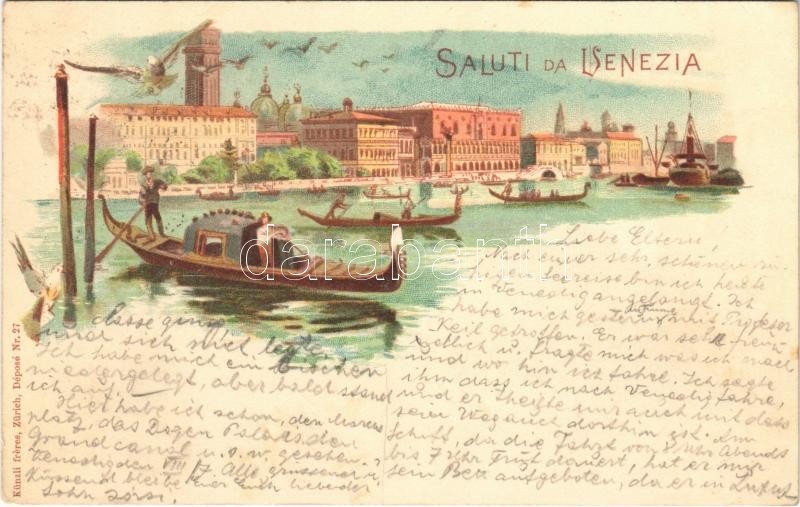 SALUTI DA VENEZIA
Liebe Eltern!
Nach einer sehr schönen ru-
higen Seereise bin ich heute
in Venedig angelangt. Ich
habe mich gestern mit Profesor
Keil getroffen. Er war sehr freun
dlich u. fragte mich was ich mach
und wo hin ich fahre. Ich sagte
ihm dass ich nach Venedig fahre,
und er theilte mir auch mit dass
sein Weg auch dorthin ist. Im
Schiff, da die Fahrt von 8 Uhr Abends
bis 7 Uhr Früh dauert, hat er mir
sein Bett aufgeboten, da er in Luxus
classe
und sich nicht legte.
Ich habe mich ein bischen
niedergelegt, aber bald stand
ich auf.
Hier habe ich schon, den Marcus
platz, das Dogen Palais, den
Grand canal u. s. w. gesehen.
Venedig den VIII/7. Alle grüssend u.
Küssend bleibe euer Euch liebender
Sohn
Künzli frères, Zürich, Déposé Nr. 27
darabanth